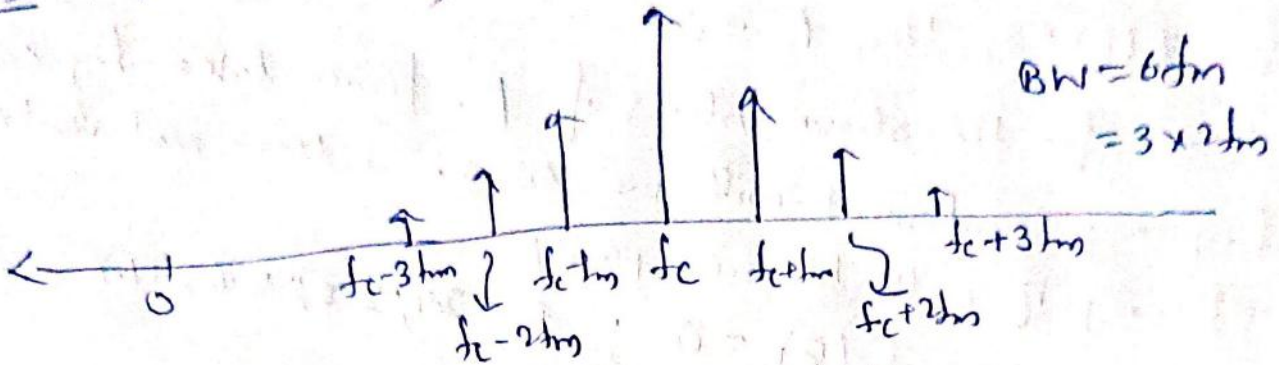 BW = 6fm
= 3 x 2fm
0 fc-3fm fc-fm fc fc+fm fc+3fm
fc-2fm fc+2fm